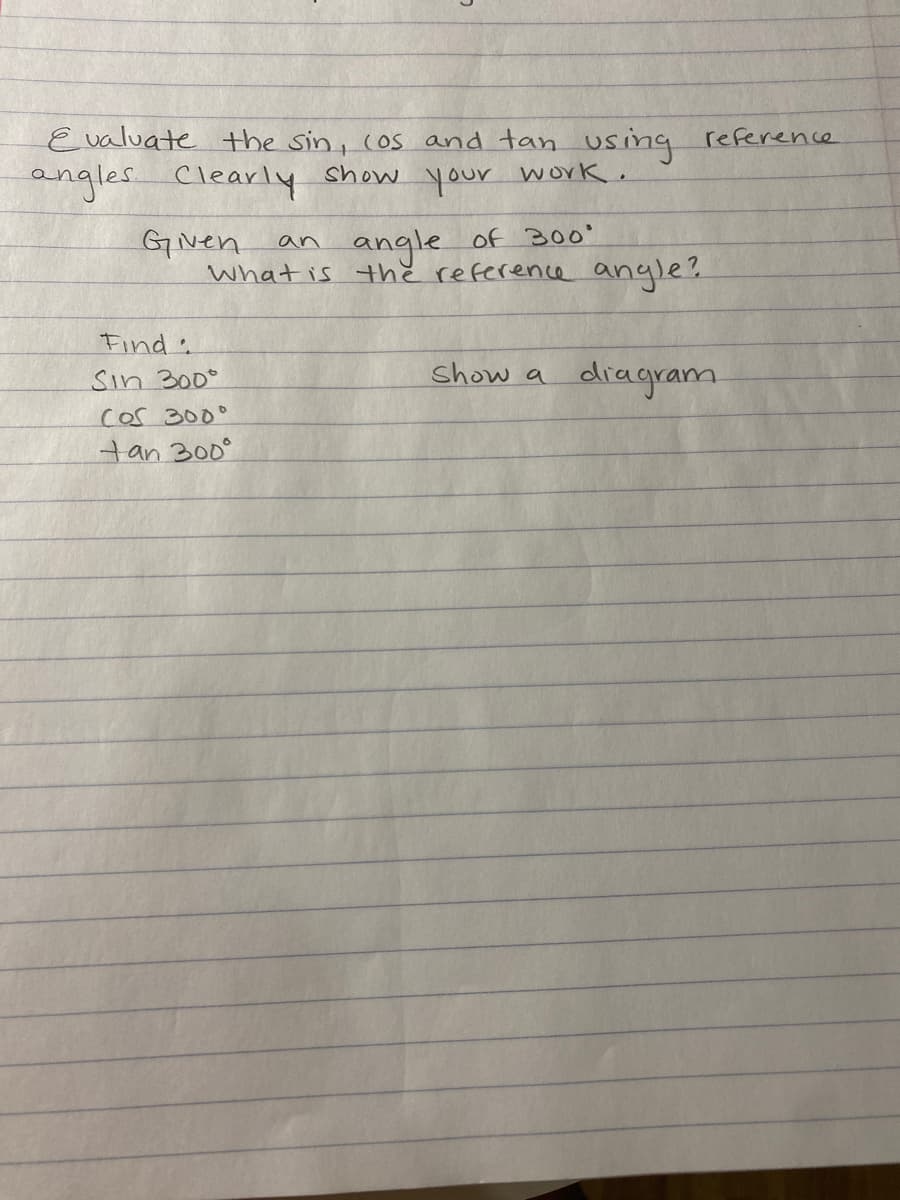 Evaluate the sin, cos and tan using reference
angles. Clearly show your work.
Given an angle of 300°
What is the reference angle?
Find:
Sin 300°
Show a diagram
cos 300°
tan 300°